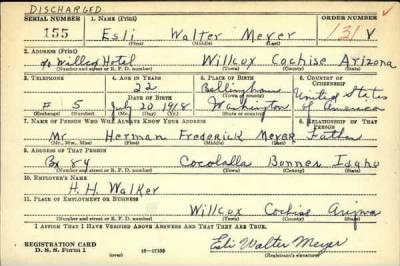 DISCHARGED
SERIAL NUMBER 1. NAME (Print) ORDER NUMBER
155 Esli Walter Meyer 131 V
(First) (Middle) (Last)
2. ADDRESS (Print)
% Willcox Hotel Willcox Cochise Arizona
(Number and street or R. F. D. number) (Town) (County) (State)
3. TELEPHONE 4. AGE IN YEARS 5. PLACE OF BIRTH 6. COUNTRY OF CITIZENSHIP
22 Bellingham United States
DATE OF BIRTH (Town or county)
F 5 July 20 1918 Washington of America
(Exchange) (Number) (Mo.) (Day) (Yr.) (State or country)
7. NAME OF PERSON WHO WILL ALWAYS KNOW YOUR ADDRESS 8. RELATIONSHIP OF THAT PERSON
Mr. Herman Frederick Meyer Father
(Mr., Mrs., Miss) (First) (Middle) (Last)
9. ADDRESS OF THAT PERSON
Bx 84 Cocolalla Bonner Idaho
(Number and street or R. F. D. number) (Town) (County) (State)
10. EMPLOYER'S NAME
H. H. Walker
11. PLACE OF EMPLOYMENT OR BUSINESS
Willcox Cochise Arizona
(Number and street or R. F. D. number) (Town) (County) (State)
I AFFIRM THAT I HAVE VERIFIED ABOVE ANSWERS AND THAT THEY ARE TRUE.
REGISTRATION CARD
D. S. S. Form 1 16—17105 Esli Walter Meyer
(Registrant's signature)